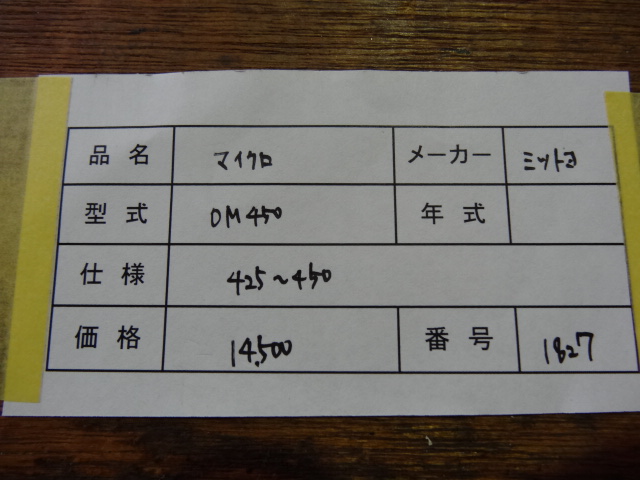 品名 マイクロ メーカー ミツトヨ
型式 OM450 年式
仕様 425~450
価格 14,500 番号 1827